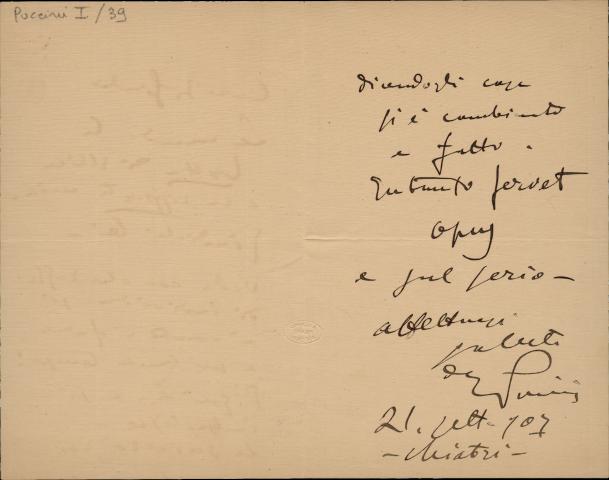 Puccini I/39
dicendogli cosa
si è combinato
e fatto.
Intanto fervet
opus
e sul serio—
affettuosi
saluti
da Puccini
21. sett. 907
-Chiatri-